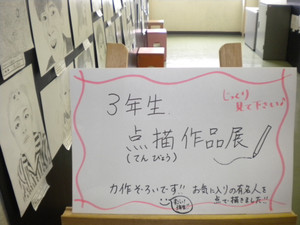 じっくり
見て下さい♪
3年生
点描作品展
(てんびょう)
力作ぞろいです!! お気に入りの有名人を
点で描きました!!